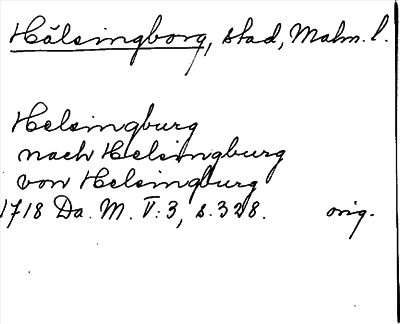 Hälsingborg, stad, Malm. l.
Helsingburg
nach Helsingburg
von Helsingburg
1718 Da. M. V: 3, s. 328. orig.